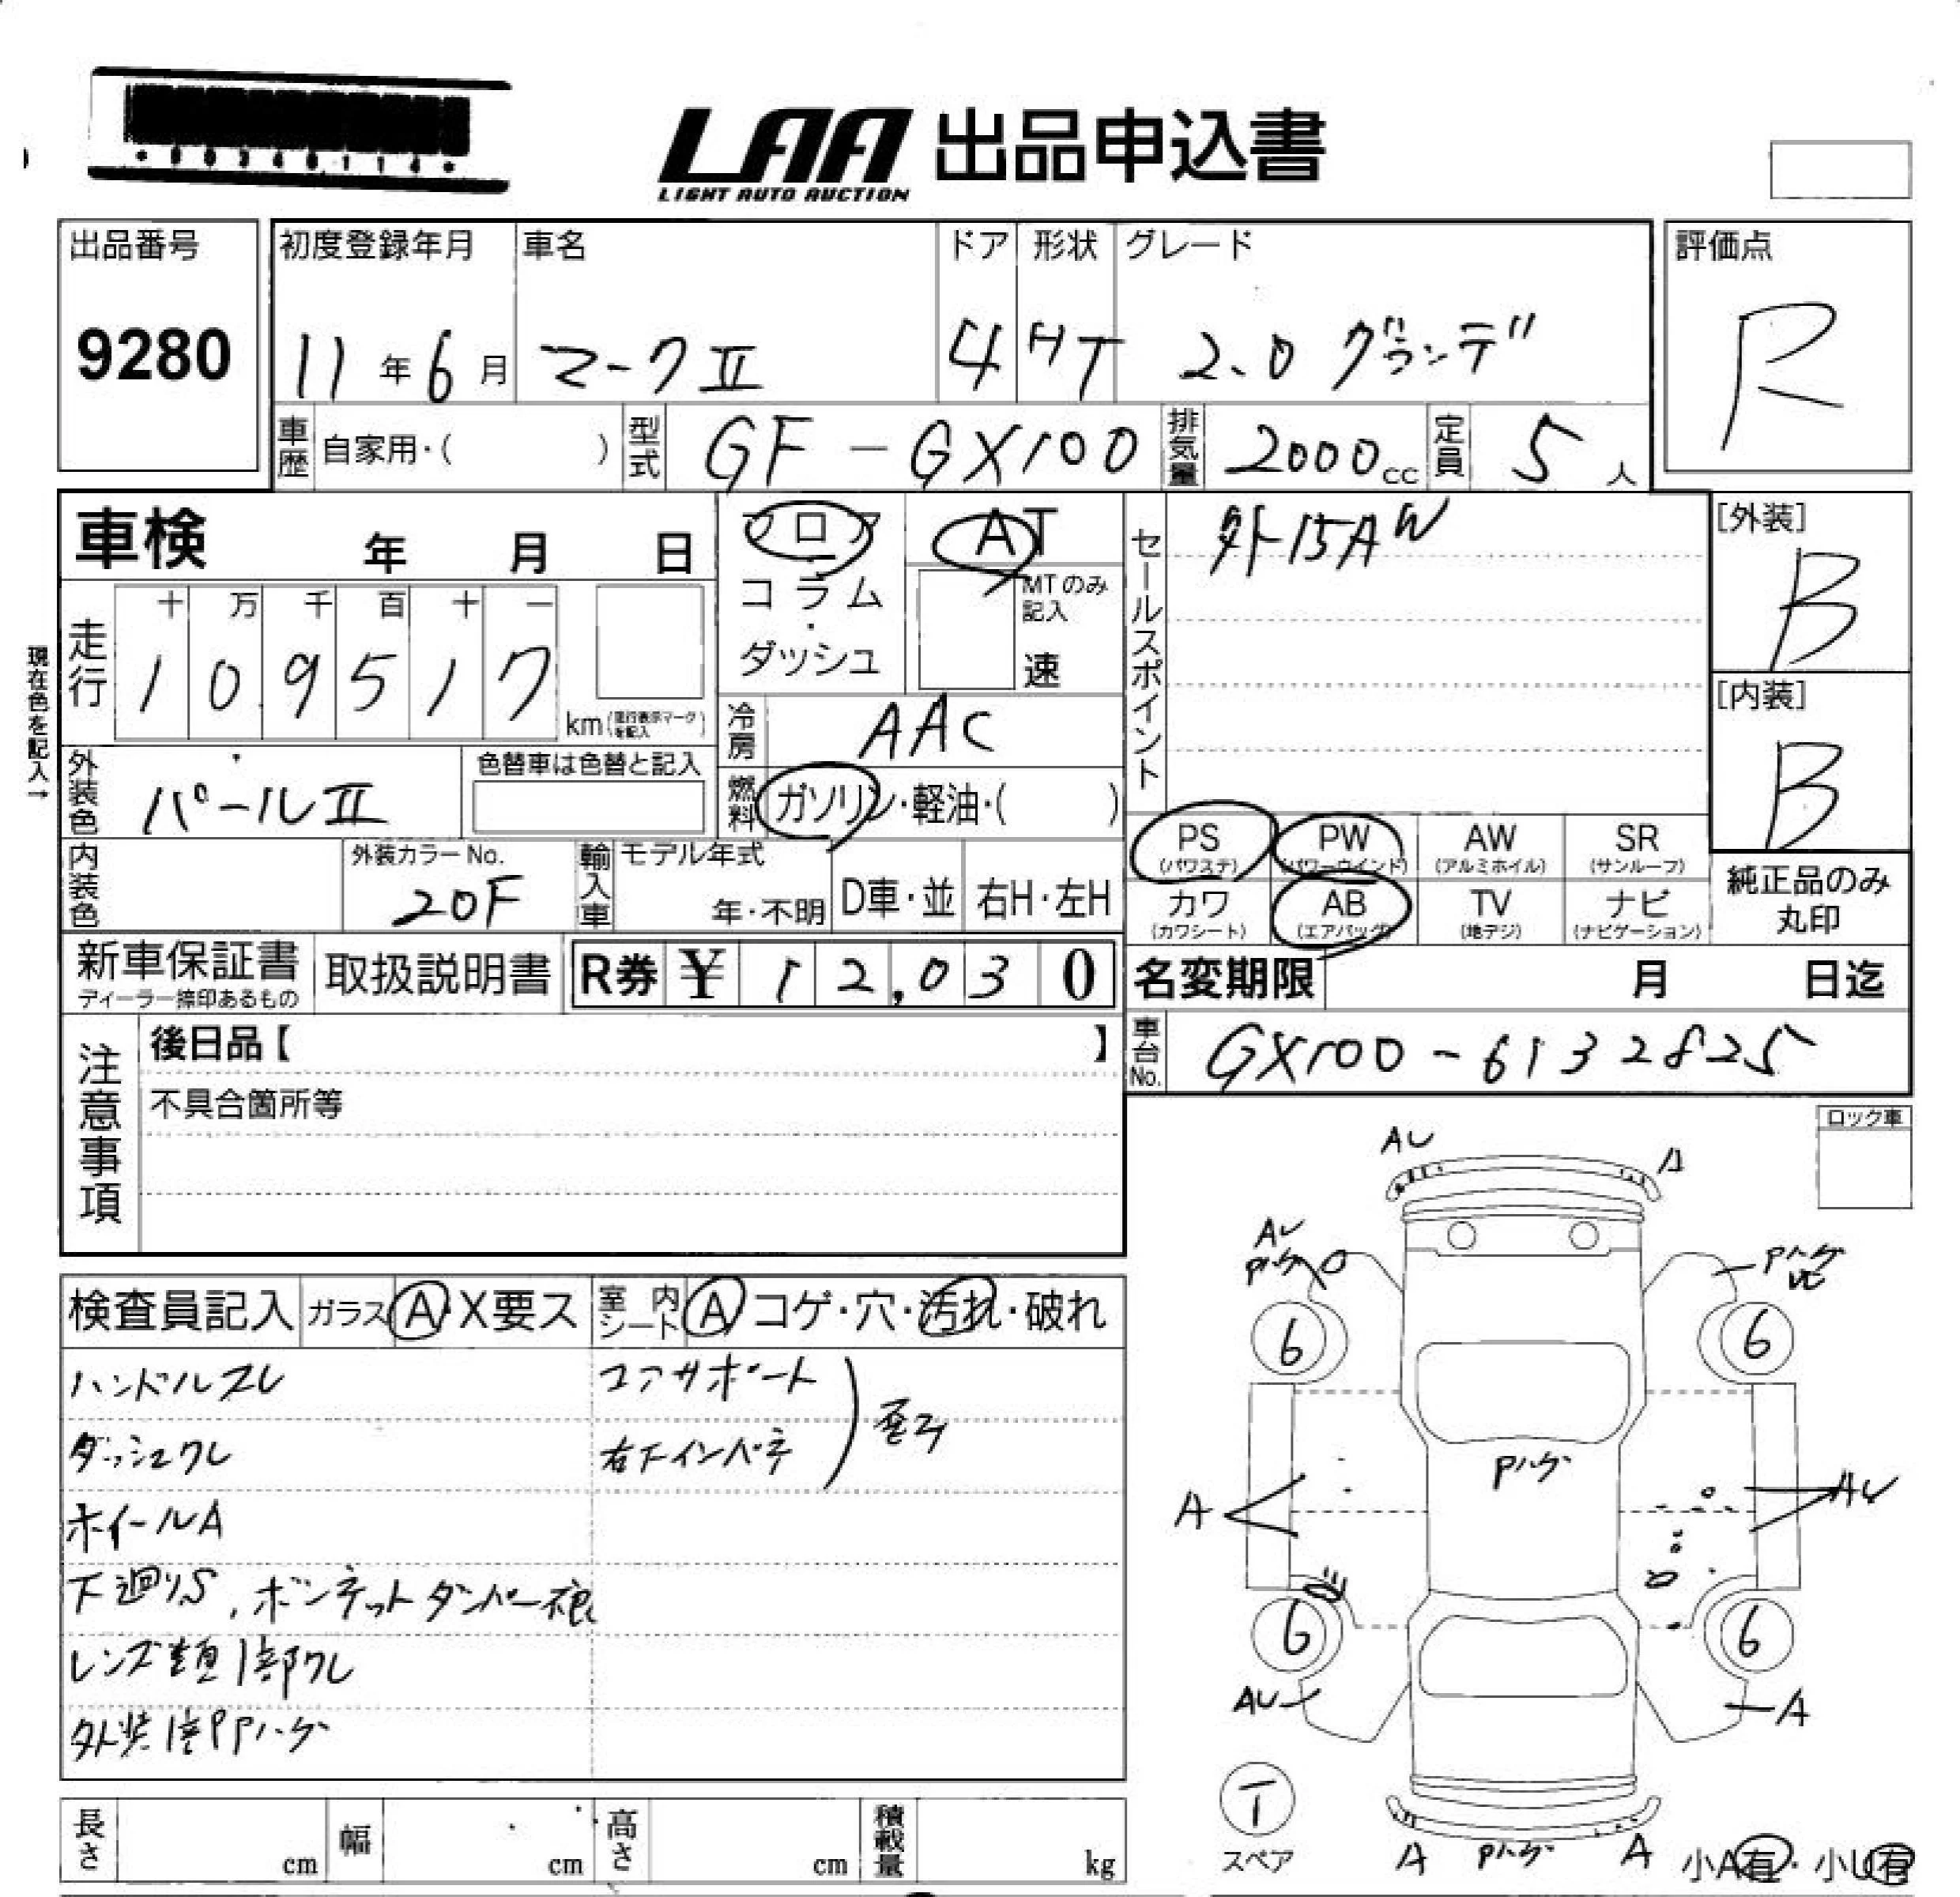 ・00340114・
LAA 出品申込書
LIGHT AUTO AUCTION
出品番号 初度登録年月 車名 ドア 形状 グレード 評価点
9280 11年6月 マークⅡ 4 HT 2.0 グランデ R
車歴 自家用・( ) 型式 GF-GX100 排気量 2000cc 定員 5人
車検 年 月 日
フロア・コラム・ダッシュ
AT
MTのみ記入
速
セールスポイント 外15AW
[外装] B
現在色を記入→
走行 十 万 千 百 十 一
109517 km
冷房 AAC
[内装] B
外装色 パールⅡ 色替車は色替と記入
燃料 ガソリン・軽油・( )
PS (パワステ) PW (パワーウインド) AW (アルミホイル) SR (サンルーフ)
純正品のみ丸印
内装色 外装カラーNo. 20F 輸入車 モデル年式 年・不明 D車・並 右H・左H
カワ (カワシート) AB (エアバッグ) TV (地デジ) ナビ (ナビゲーション)
新車保証書 ディーラー捺印あるもの 取扱説明書 R券 ¥ 12,030
名変期限 月 日迄
車台No. GX100-6132825
注意事項
後日品【 】
不具合箇所等
ロック車
検査員記入 ガラス A・X要ス 室内シート A コゲ・穴・汚れ・破れ
ハンドルスレ コアサポート
歪み
ダッシュワレ 右下インパネ
ホイールA
下廻りS、ボンネットダンパー痕
レンズ類1部ワレ
外装1部PPハゲ
AU A
AU Pハゲ
Pハゲ
6 6
Pハゲ
A AU
6 6
AU A
T
スペア
A Pハゲ A 小A有・小U有
長さ cm 幅 cm 高さ cm 積載量 kg